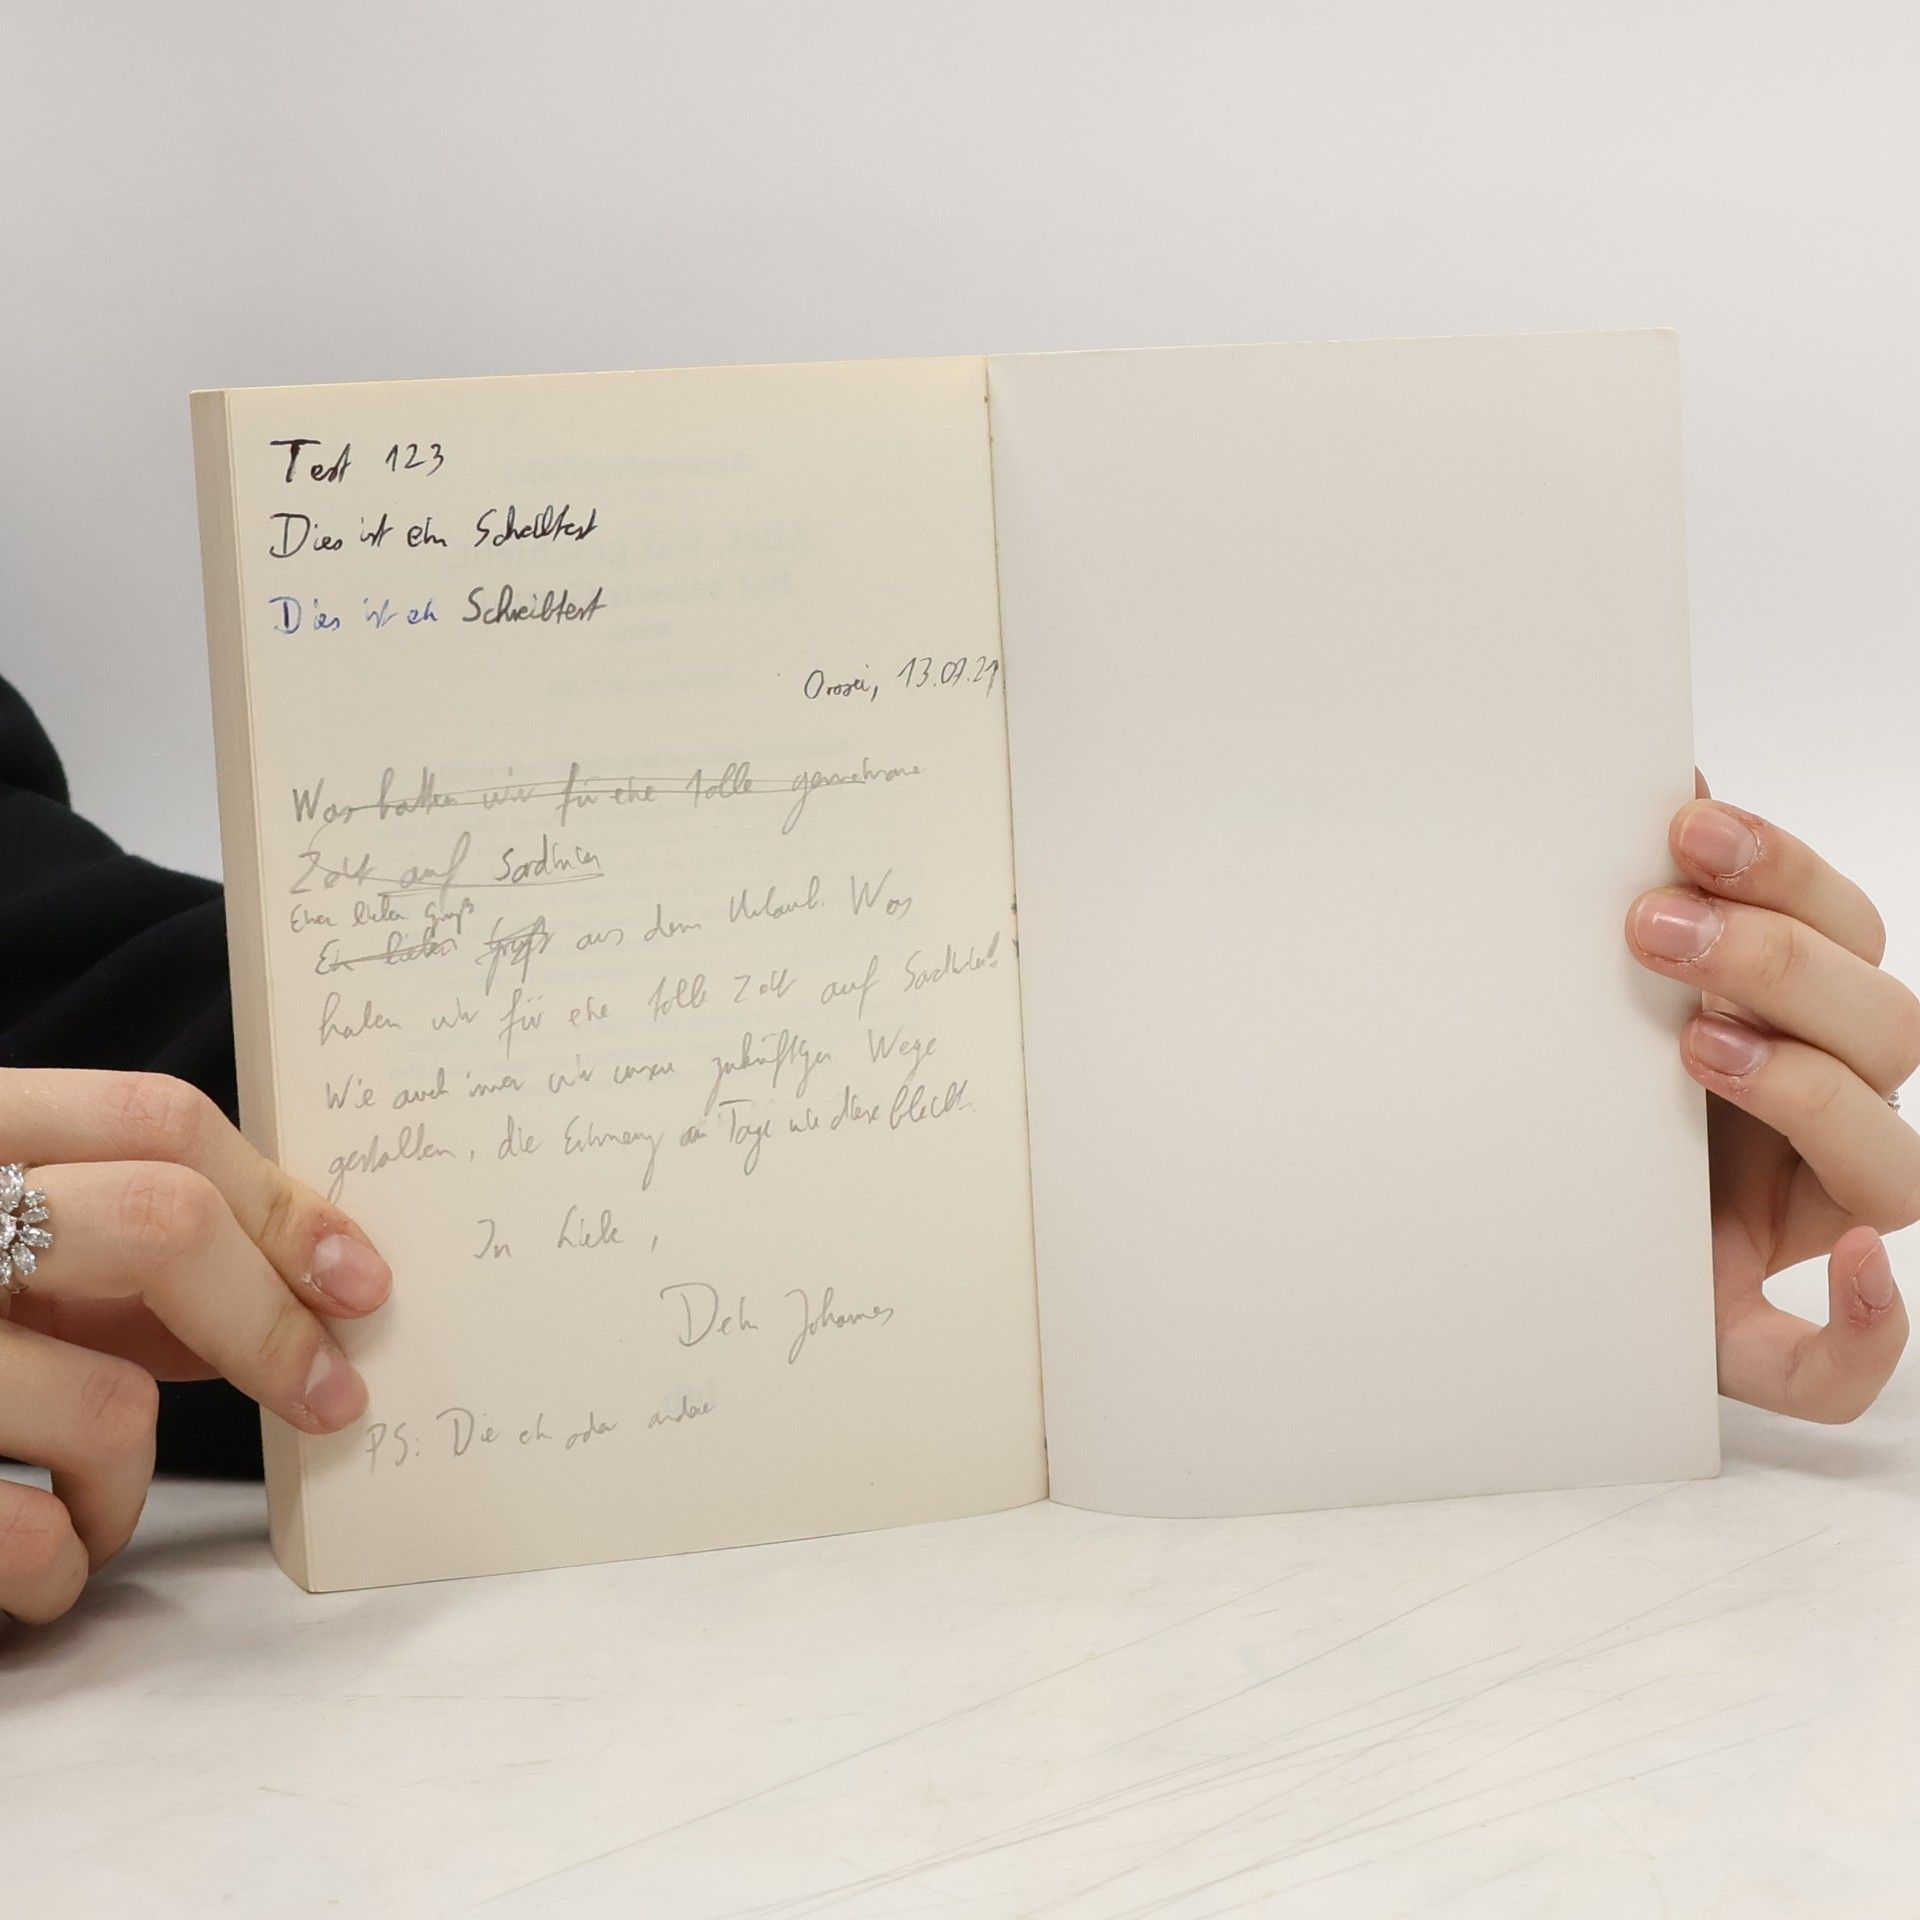 Test 123
Dies ist ein Schreibtest
Dies ist ein Schreibtest
Orosei, 13.07.21
Was hatten wir für eine tolle gemeinsame
Zeit auf Sardinien
Einen lieben Gruß
Ein lieber Gruß aus dem Urlaub. Was
haben wir für eine tolle Zeit auf Sardinien!
Wie auch immer wir unsere zukünftigen Wege
gestalten, die Erinnerung an Tage wie diese bleibt.
In Liebe,
Dein Johannes
PS: Die ein oder andere